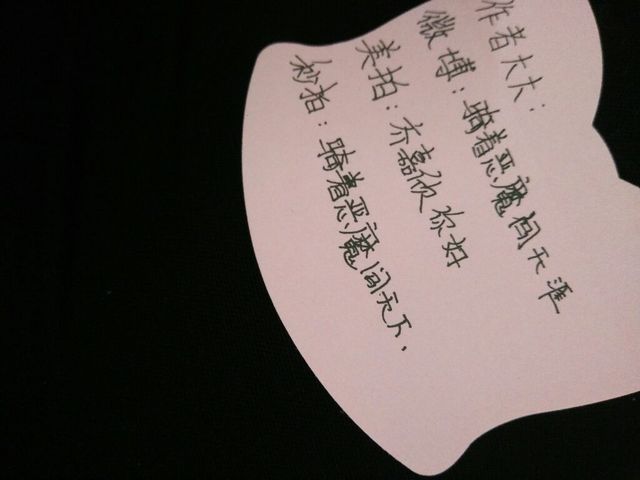 作者大大:
微博:骑着恶魔闯天涯
美拍:乔嘉欣你好
秒拍:骑着恶魔闯天下.